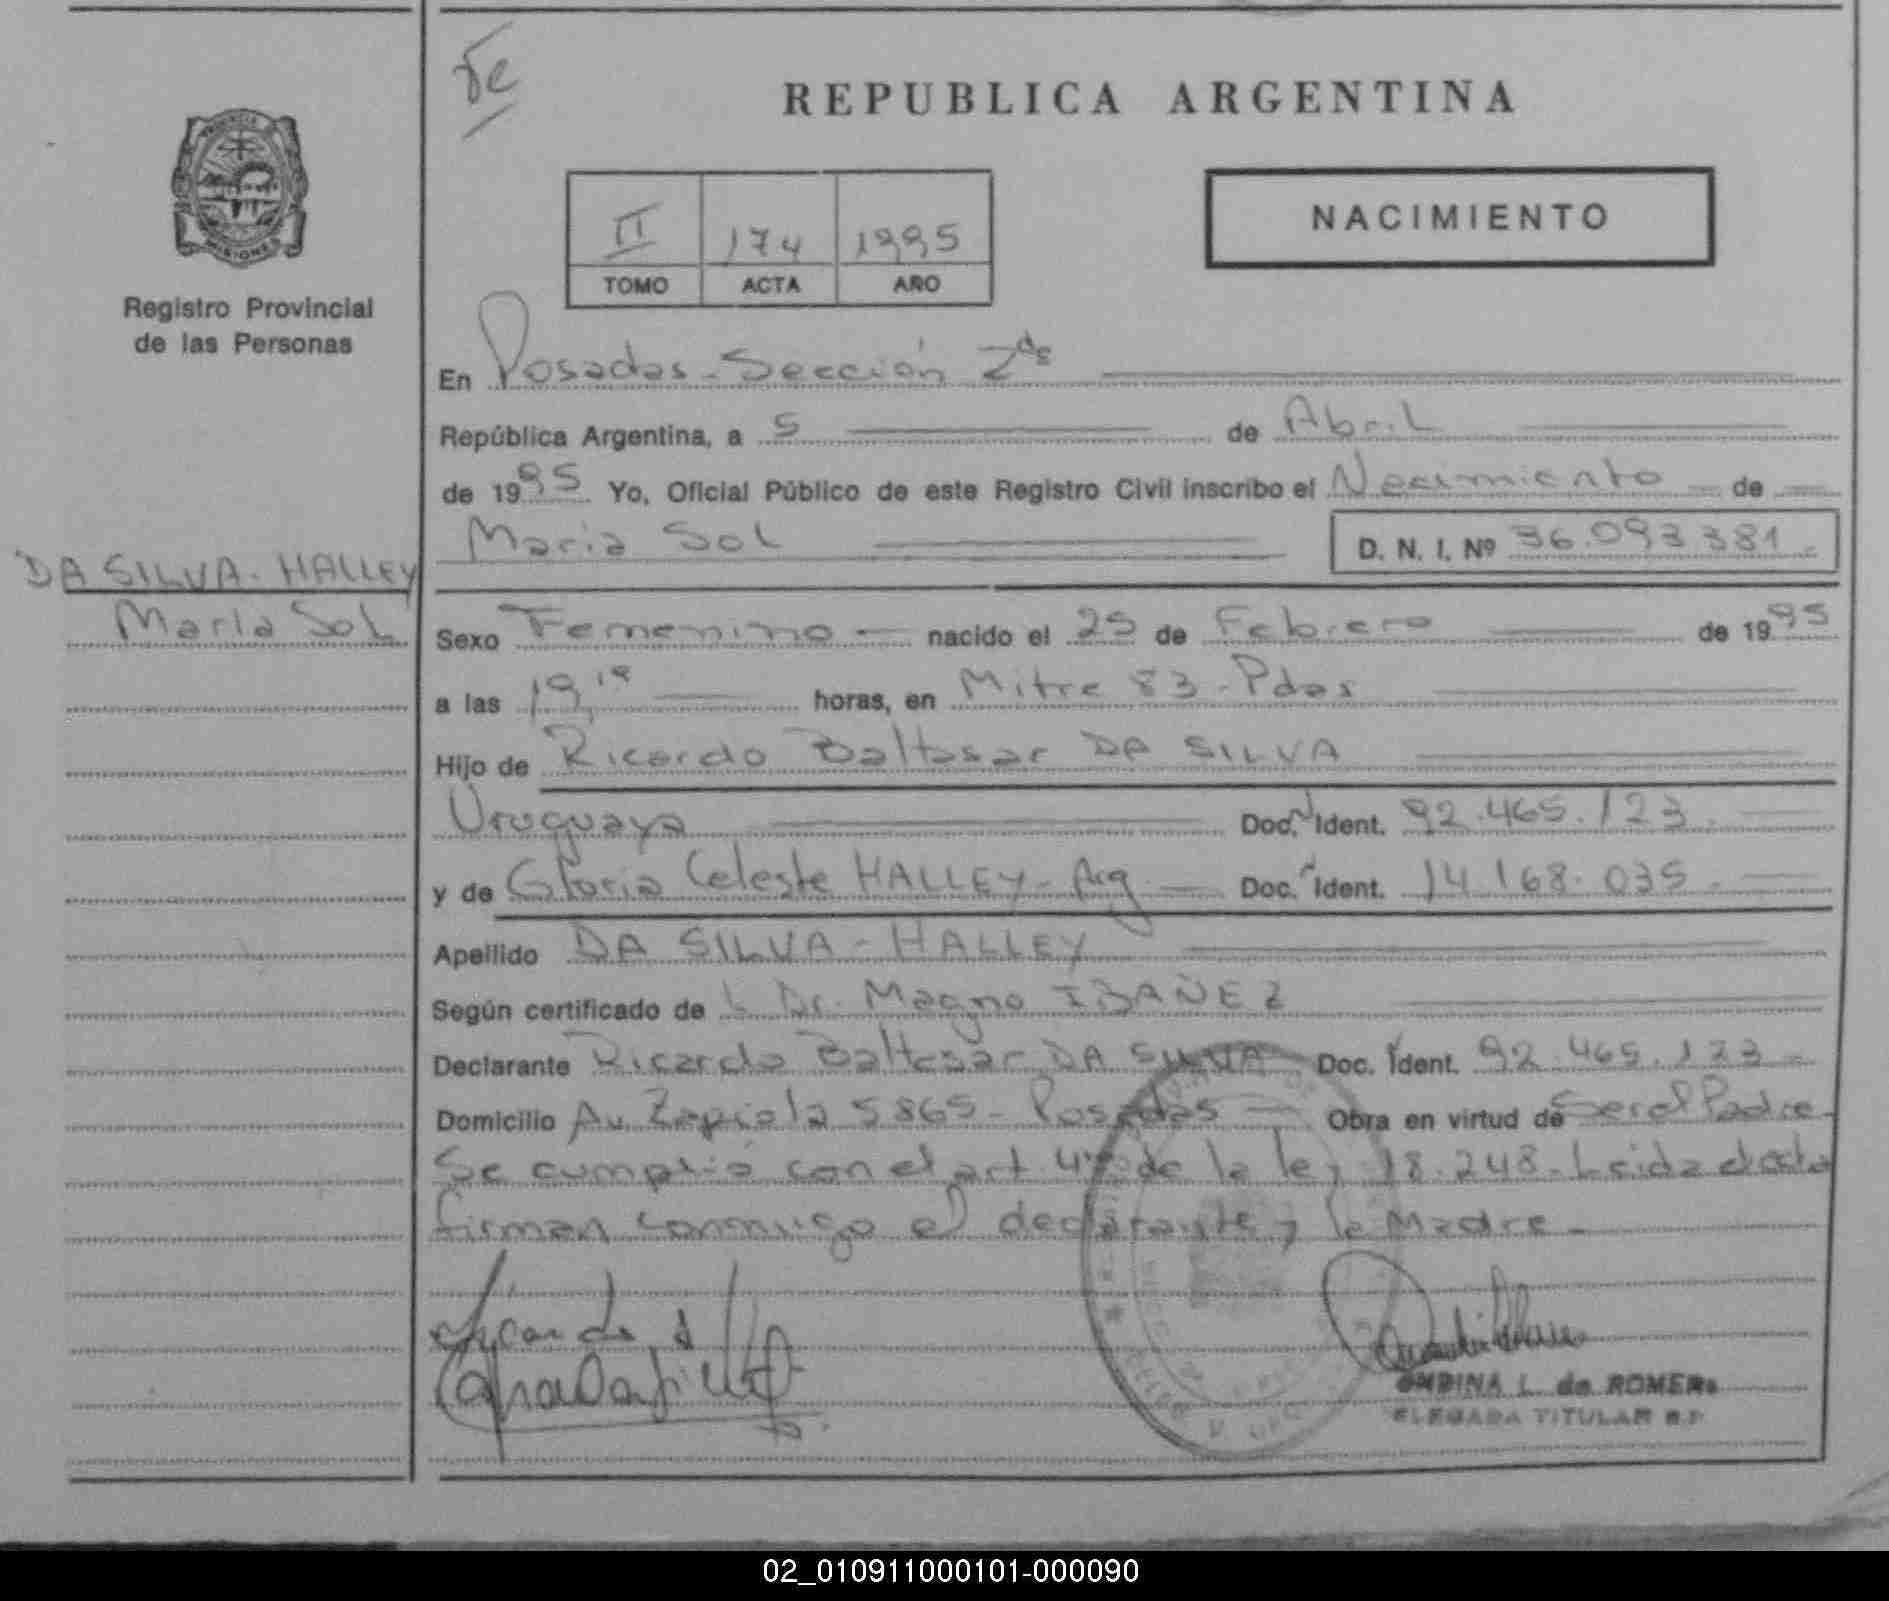 Fe
REPUBLICA ARGENTINA
PROVINCIA
MISIONES
II 174 1995
TOMO ACTA AÑO
NACIMIENTO
Registro Provincial
de las Personas
En Posadas - Sección 2da
República Argentina, a 5 de Abril
de 1995 Yo, Oficial Público de este Registro Civil inscribo el Nacimiento de
Maria Sol D. N. I. Nº 36.093.381.-
DA SILVA - HALLEY
Maria Sol
Sexo Femenino nacido el 25 de Febrero de 1995
a las 19,19 horas, en Mitre 83 - Pdas
Hijo de Ricardo Baltasar DA SILVA
Uruguaya Doc. Ident. 92.465.123.
y de Gloria Celeste HALLEY - Arg Doc. Ident. 14.168.035.
Apellido DA SILVA - HALLEY
Según certificado de L Dr. Magno IBAÑEZ
Declarante Ricardo Baltasar DA SILVA Doc. Ident. 92.465.123 -
Domicilio Av. Zapiola 5865 - Posadas Obra en virtud de Ser el Padre -
Se cumplió con el art. 4to de la ley 18.248 - Leida el acta
firman conmigo el declarante y la Madre -
Ricardo d
ONDINA L. de ROMERO
DELEGADA TITULAR R.P.
02_010911000101-000090